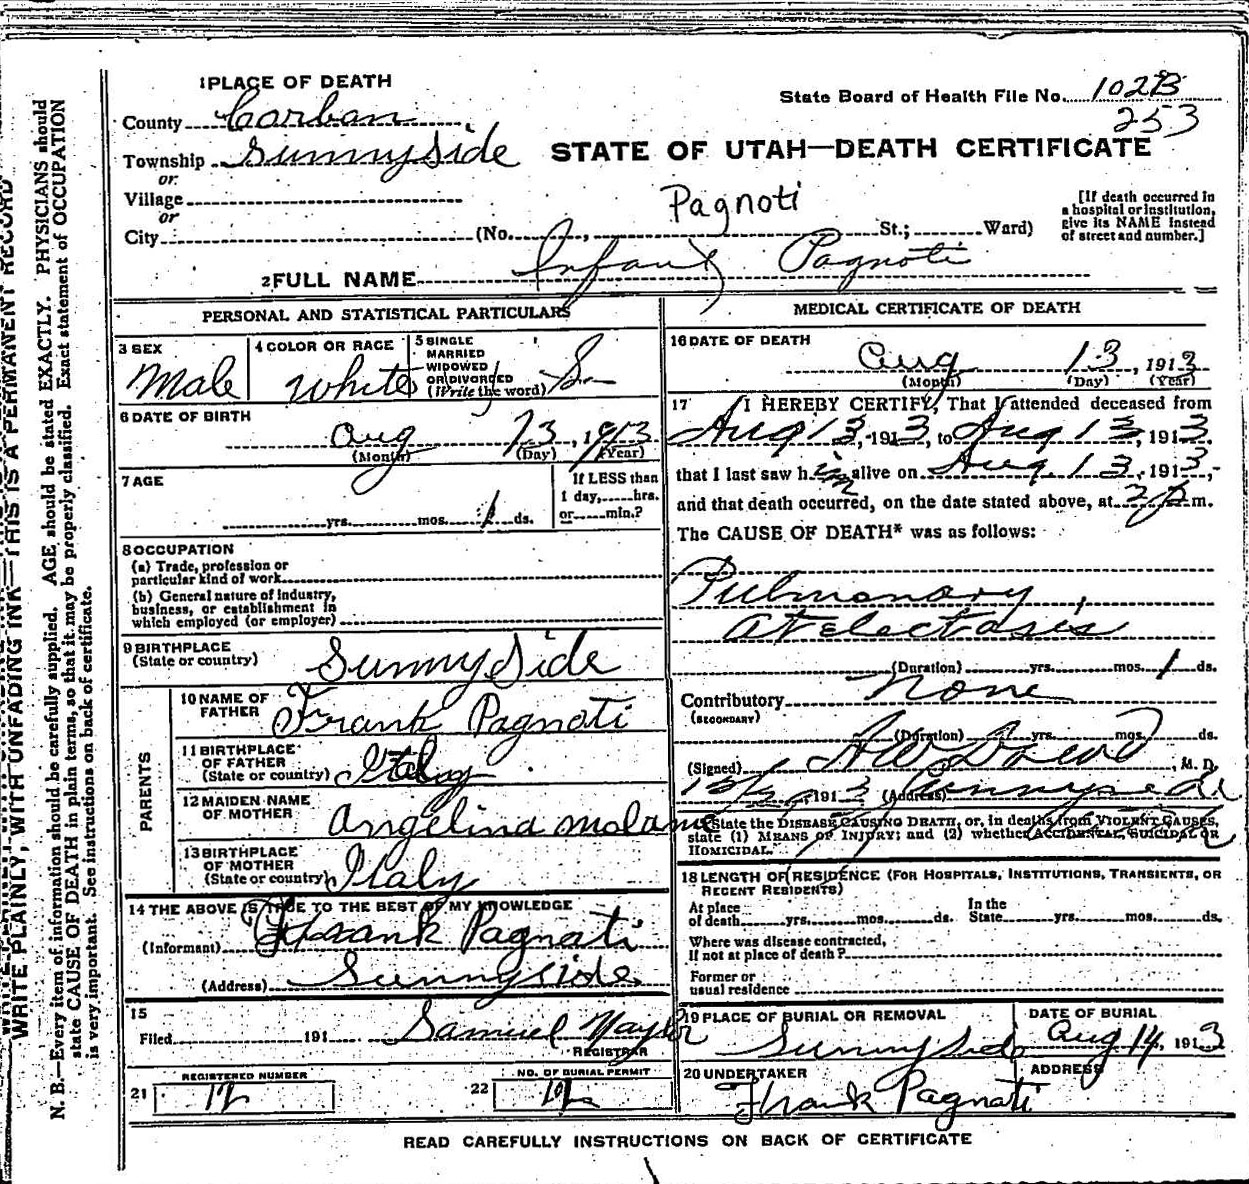 1 PLACE OF DEATH
State Board of Health File No. 102B
253
County Carban
Township Sunnyside
or
STATE OF UTAH—DEATH CERTIFICATE
Village
or
Pagnoti
City (No. , St.; Ward)
[If death occurred in
a hospital or institution,
give its NAME instead
of street and number.]
2 FULL NAME Infant Pagnoti
PERSONAL AND STATISTICAL PARTICULARS
3 SEX
Male
4 COLOR OR RACE
White
5 SINGLE
MARRIED
WIDOWED
OR DIVORCED
(Write the word) S
6 DATE OF BIRTH
Aug 13, 1913
(Month) (Day) (Year)
7 AGE
yrs. mos. 1 ds.
If LESS than
1 day, hrs.
or min.?
8 OCCUPATION
(a) Trade, profession or
particular kind of work
(b) General nature of industry,
business, or establishment in
which employed (or employer)
9 BIRTHPLACE
(State or country) Sunnyside
PARENTS
10 NAME OF
FATHER Frank Pagnati
11 BIRTHPLACE
OF FATHER
(State or country) Italy
12 MAIDEN NAME
OF MOTHER Angelina
13 BIRTHPLACE
OF MOTHER
(State or country) Italy
14 THE ABOVE IS TRUE TO THE BEST OF MY KNOWLEDGE
(Informant) Frank Pagnati
(Address) Sunnyside
15
Filed 191 Samuel Naylor
REGISTRAR
21 REGISTERED NUMBER
12
22 NO. OF BURIAL PERMIT
12
MEDICAL CERTIFICATE OF DEATH
16 DATE OF DEATH
Aug 13, 1913
(Month) (Day) (Year)
17 I HEREBY CERTIFY, That I attended deceased from
Aug 13, 1913, to Aug 13, 1913.
that I last saw h im alive on Aug. 13, 1913,
and that death occurred, on the date stated above, at 2 p m.
The CAUSE OF DEATH* was as follows:
Pulmonary
Atelectasis
(Duration) yrs. mos. 1 ds.
Contributory None
(SECONDARY)
(Duration) yrs. mos. ds.
(Signed) A W Dowd, M. D.
191 3 (Address) Sunnyside
*State the DISEASE CAUSING DEATH, or, in deaths from VIOLENT CAUSES,
state (1) MEANS OF INJURY; and (2) whether ACCIDENTAL, SUICIDAL OR
HOMICIDAL.
18 LENGTH OF RESIDENCE (FOR HOSPITALS, INSTITUTIONS, TRANSIENTS, OR
RECENT RESIDENTS)
At place
of death yrs. mos. ds.
In the
State yrs. mos. ds.
Where was disease contracted,
If not at place of death?
Former or
usual residence
19 PLACE OF BURIAL OR REMOVAL
Sunnyside
DATE OF BURIAL
Aug 14, 1913
20 UNDERTAKER
Frank Pagnati
ADDRESS
READ CAREFULLY INSTRUCTIONS ON BACK OF CERTIFICATE
WRITE PLAINLY, WITH UNFADING INK—THIS IS A PERMANENT RECORD
N. B.—Every item of information should be carefully supplied. AGE should be stated EXACTLY. PHYSICIANS should
state CAUSE OF DEATH in plain terms, so that it may be properly classified. Exact statement of OCCUPATION
is very important. See instructions on back of certificate.